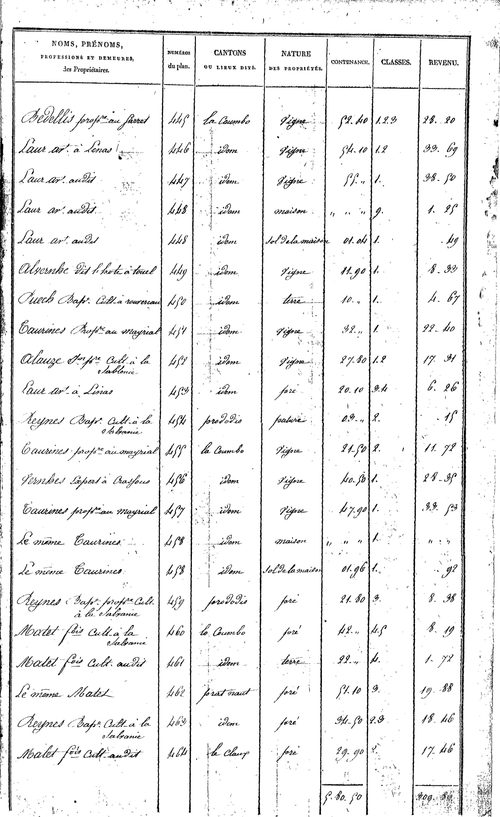 NOMS, PRÉNOMS, PROFESSIONS ET DEMEURES, des Propriétaires. NUMÉROS du plan. CANTONS OU LIEUX DITS. NATURE DES PROPRIÉTÉS. CONTENANCE. CLASSES. REVENU.
Bedellis prop.re au 445 la Coumbo vigne 52.40 1.2.3 28.20
Laur av.t à Linas 446 idem vigne 54.10 1.2 33.69
Laur av.t audit 447 idem vigne 55 „ 1. 38.50
Laur av.t audit 448 idem maison „ „ „ 9. 1.25
Laur av.t audit 448 idem sol de la maison 01.04 1. .49
Alvernhe dit l'hote à 449 idem vigne 11.90 1. 8.33
Puech Bap.te Cult. à 450 idem terre 10 „ 1. 4.67
Taurines Prop.re au mayrial 451 idem vigne 32 „ 1. 22.40
Alauze Cult. à la 452 idem vigne 27.80 1.2 17.31
Laur av.t à Linas 453 idem pré 20.10 3.4 6.26
Reynes Bap.te Cult. à la Salvanie 454 prododis pature 03 „ 2. .15
Taurines prop.re au mayrial 455 la Coumbo vigne 21.50 2. 11.72
à Crassous 456 idem vigne 40.50 1. 28.35
Taurines prop.re au mayrial 457 idem vigne 47.90 1. 33.53
Le même Taurines 458 idem maison „ „ „ 1. „ „
Le même Taurines 458 idem sol de la maison 01.96 1. .92
Reynes Bap.te prop.re Cult. à la Salvanie 459 prododis pré 21.80 3. 8.38
Malet f.ois Cult. à la Salvanie 460 la Coumbo pré 42 „ 4.5 8.19
Malet f.ois Cult. audit 461 idem terre 22 „ 4. 1.72
Le même Malet 462 prat naut pré 51.10 3. 19.88
Reynes Bap.te Cult. à la Salvanie 463 idem pré 34.50 2.3 18.46
Malet f.ois Cult. audit 464 la Claux pré 29.90 2. 17.46
5.80.50 309.80